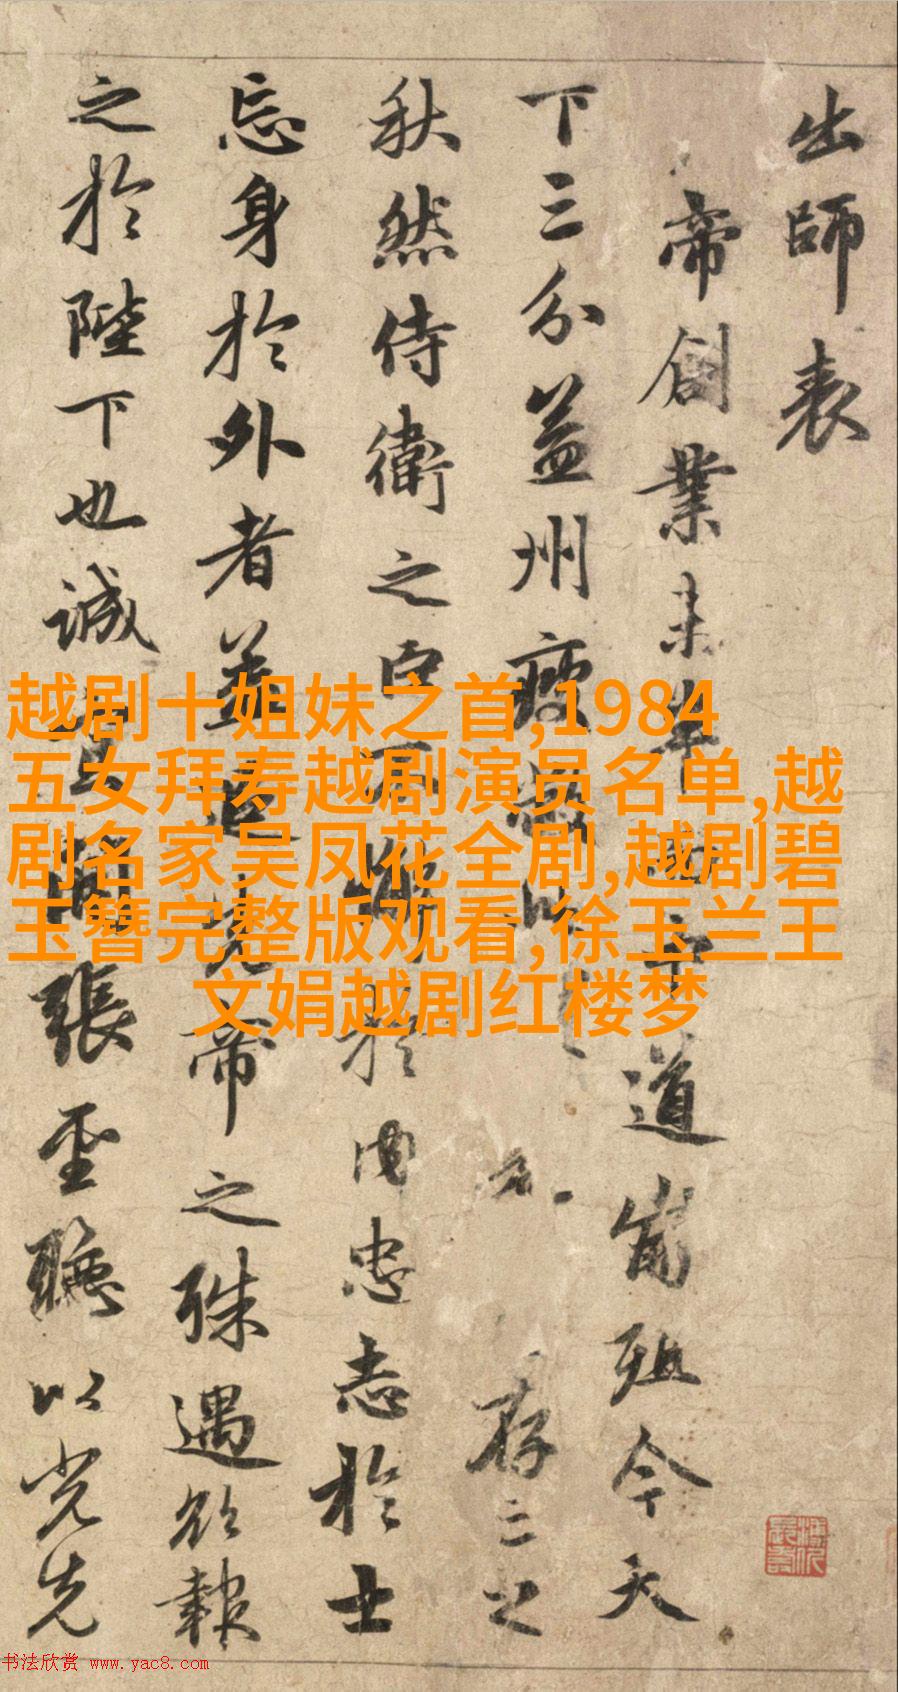 出師表
帝創業未半而中道崩殂今天
下三分益州疲弊 存亡之
秋然侍衛之臣不懈於内忠志於士
忘身於外者蓋追先帝之殊遇欲報
之於陛下也誠宜開張聖聽以光先
越剧十姐妹之首,1984
五女拜寿越剧演员名单,越
剧名家吴凤花全剧,越剧碧
玉簪完整版观看,徐玉兰王
文娟越剧红楼梦
书法欣赏 www.yac8.com